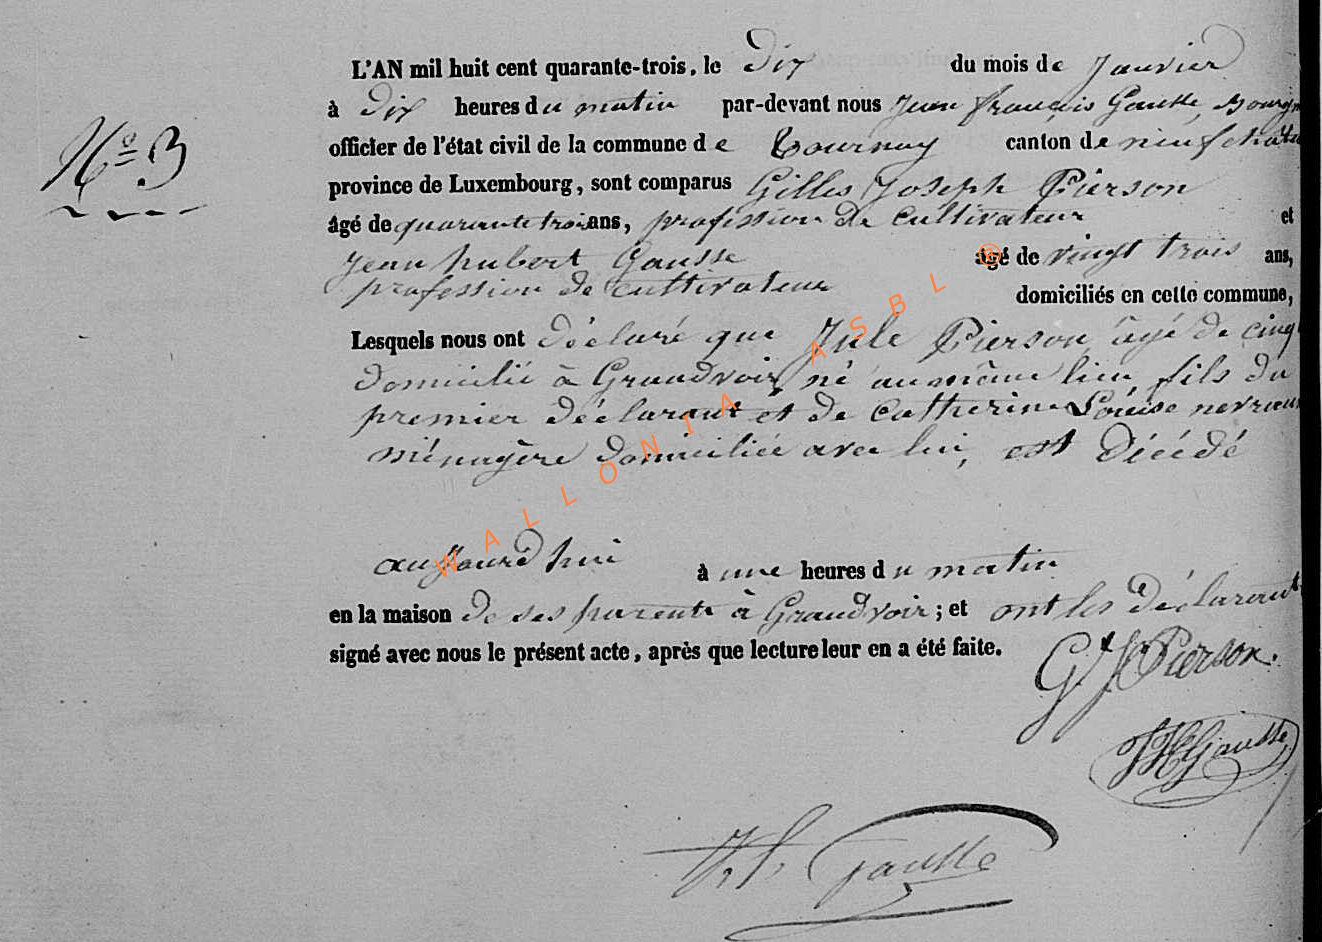 L'AN mil huit cent quarante-trois, le dix du mois de Janvier
à dix heures du matin par-devant nous Jean françois Gausse, Bourgm
N° 3
officier de l'état civil de la commune de Tournay canton de neufchatea
province de Luxembourg, sont comparus Gilles Joseph Pierson
âgé de quarante trois ans, profession de cultivateur et
Jean hubert Gausse âgé de vingt trois ans,
profession de cultivateur domiciliés en cette commune,
Lesquels nous ont déclaré que Jule Pierson âgé de cinq
domicilié à Grandvoir, né au même lieu, fils du
premier déclarant et de Catherine Louise
ménagère domiciliée avec lui, est décédé
aujourd'hui à une heures du matin
en la maison de ses parents à Grandvoir; et ont les déclarants
signé avec nous le présent acte, après que lecture leur en a été faite.
G J Pierson.
JH Gausse
J. f. Gausse
WALLONIA ASBL ®